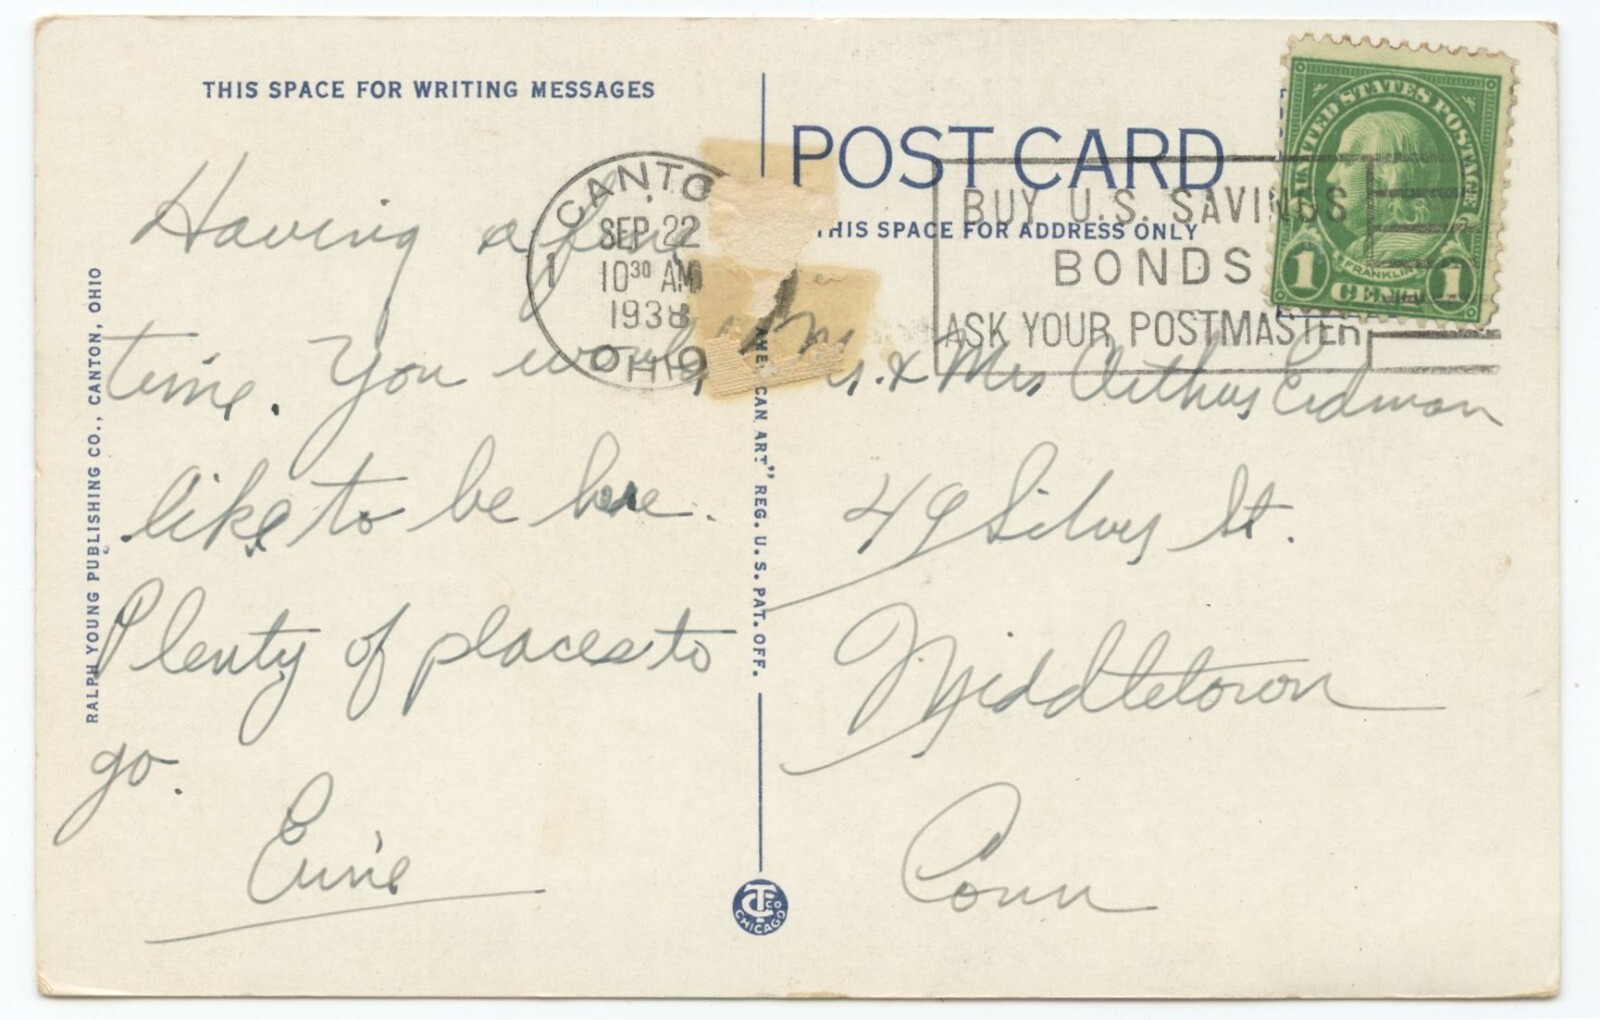 THIS SPACE FOR WRITING MESSAGES
Having a fine
time. You would
like to be here.
Plenty of places to
go.
Ernie
RALPH YOUNG PUBLISHING CO., CANTON, OHIO
CANTO
1
SEP 22
10³⁰ AM
1938
OHIO
POST CARD
THIS SPACE FOR ADDRESS ONLY
BUY U.S. SAVINGS
BONDS
ASK YOUR POSTMASTER
UNITED STATES POSTAGE
FRANKLIN
1 CENT 1
Mr. & Mrs Arthur Erdman
49 Silver St.
Middletown
Conn
AMERICAN ART" REG. U.S. PAT. OFF.
CTCO
CHICAGO